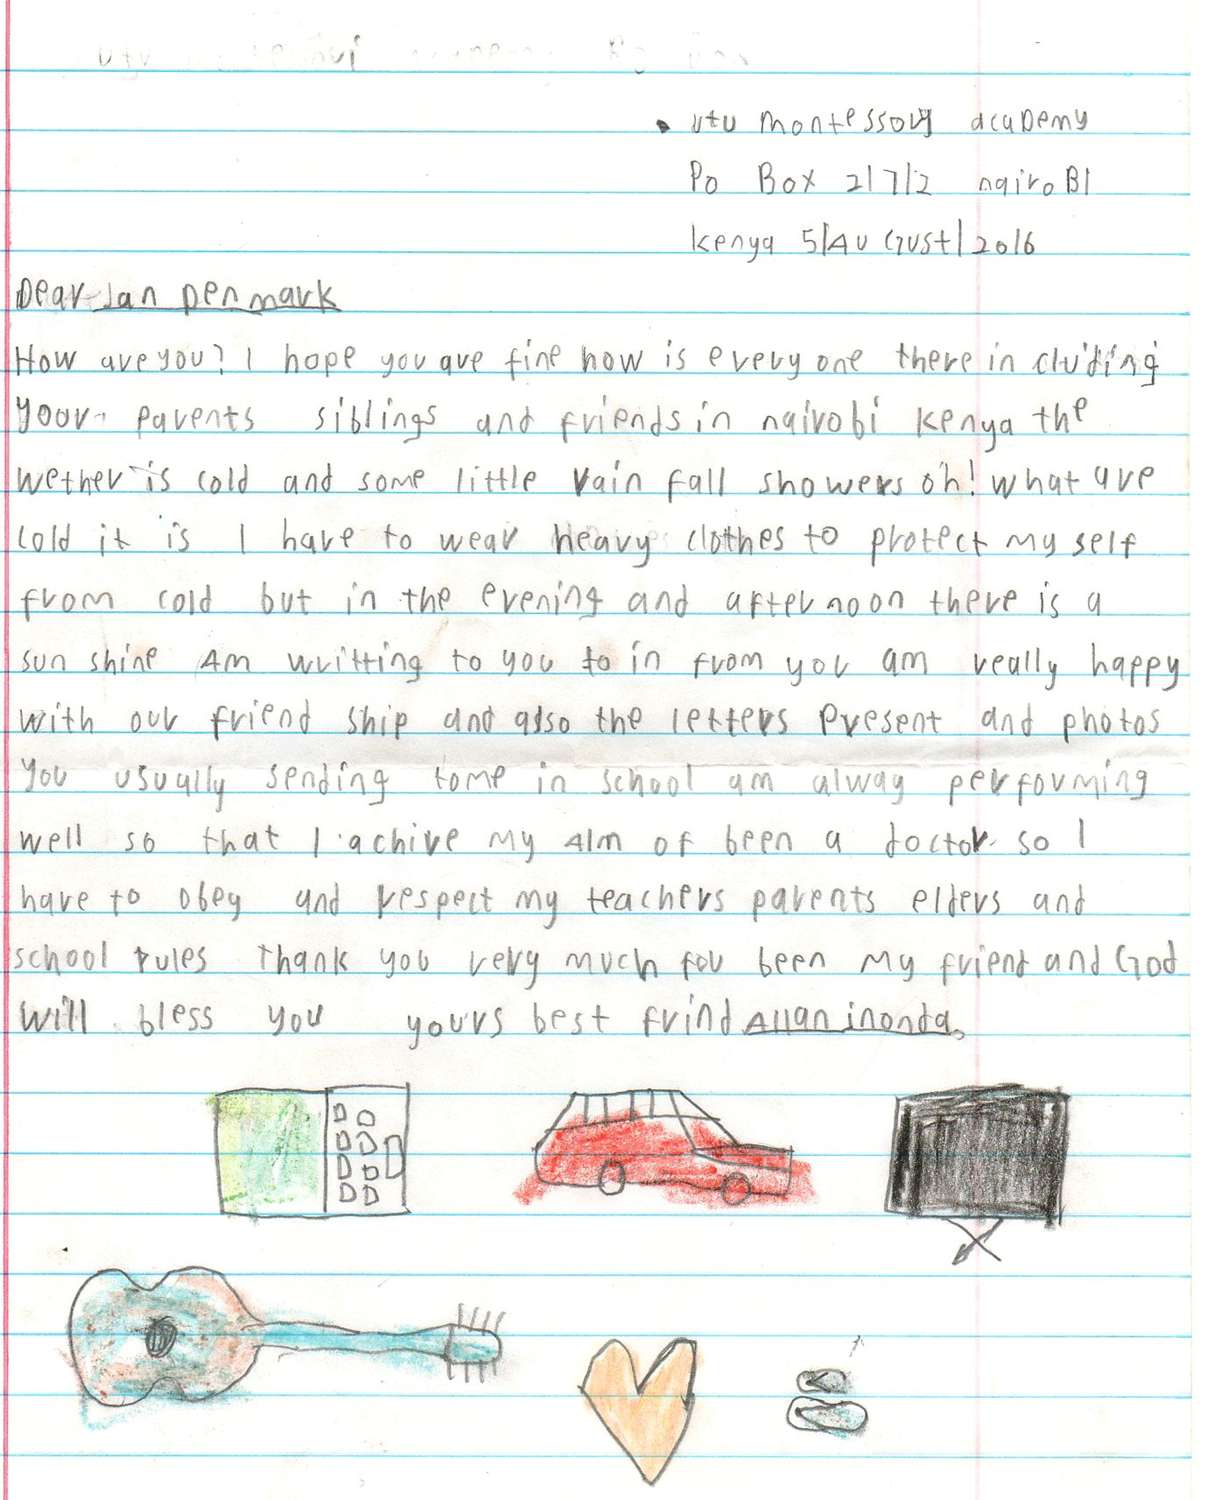 utu montessory acaDemy
Po Box 21712 nairoBI
kenya 5/AuGust/2016
Dear Jan Denmark
How are you? I hope you are fine how is every one there in cluding
your parents siblings and friends in nairobi kenya the
wether is cold and some little rain fall showers oh! what are
cold it is I have to wear heavy clothes to protect my self
from cold but in the evening and afternoon there is a
sun shine Am writting to you to in from you am really happy
with our friend ship and also the letters Present and photos
you usually sending to me in school am alway performing
well so that I achive my AIm of been a doctor so I
have to obey and respect my teachers parents elders and
school rules thank you very much for been my friend and God
will bless you yours best frind Allan inonda.